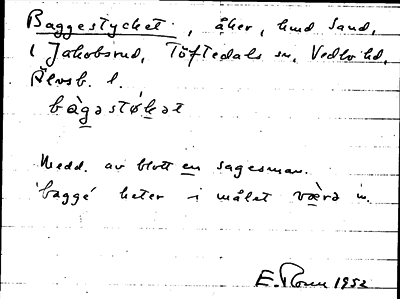 Baggestycket, åker, hmd Sand,
i Jakobsrud, Töftedals sn, Vedbo hd,
Älvsb. l.
bàgəstøkət
Medd. av blott en sagesman.
'bagge' heter i målet væ̀rə m.
E. Noren 1952